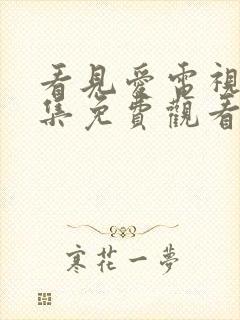 看見愛電視
集免費觀看
寒花一夢